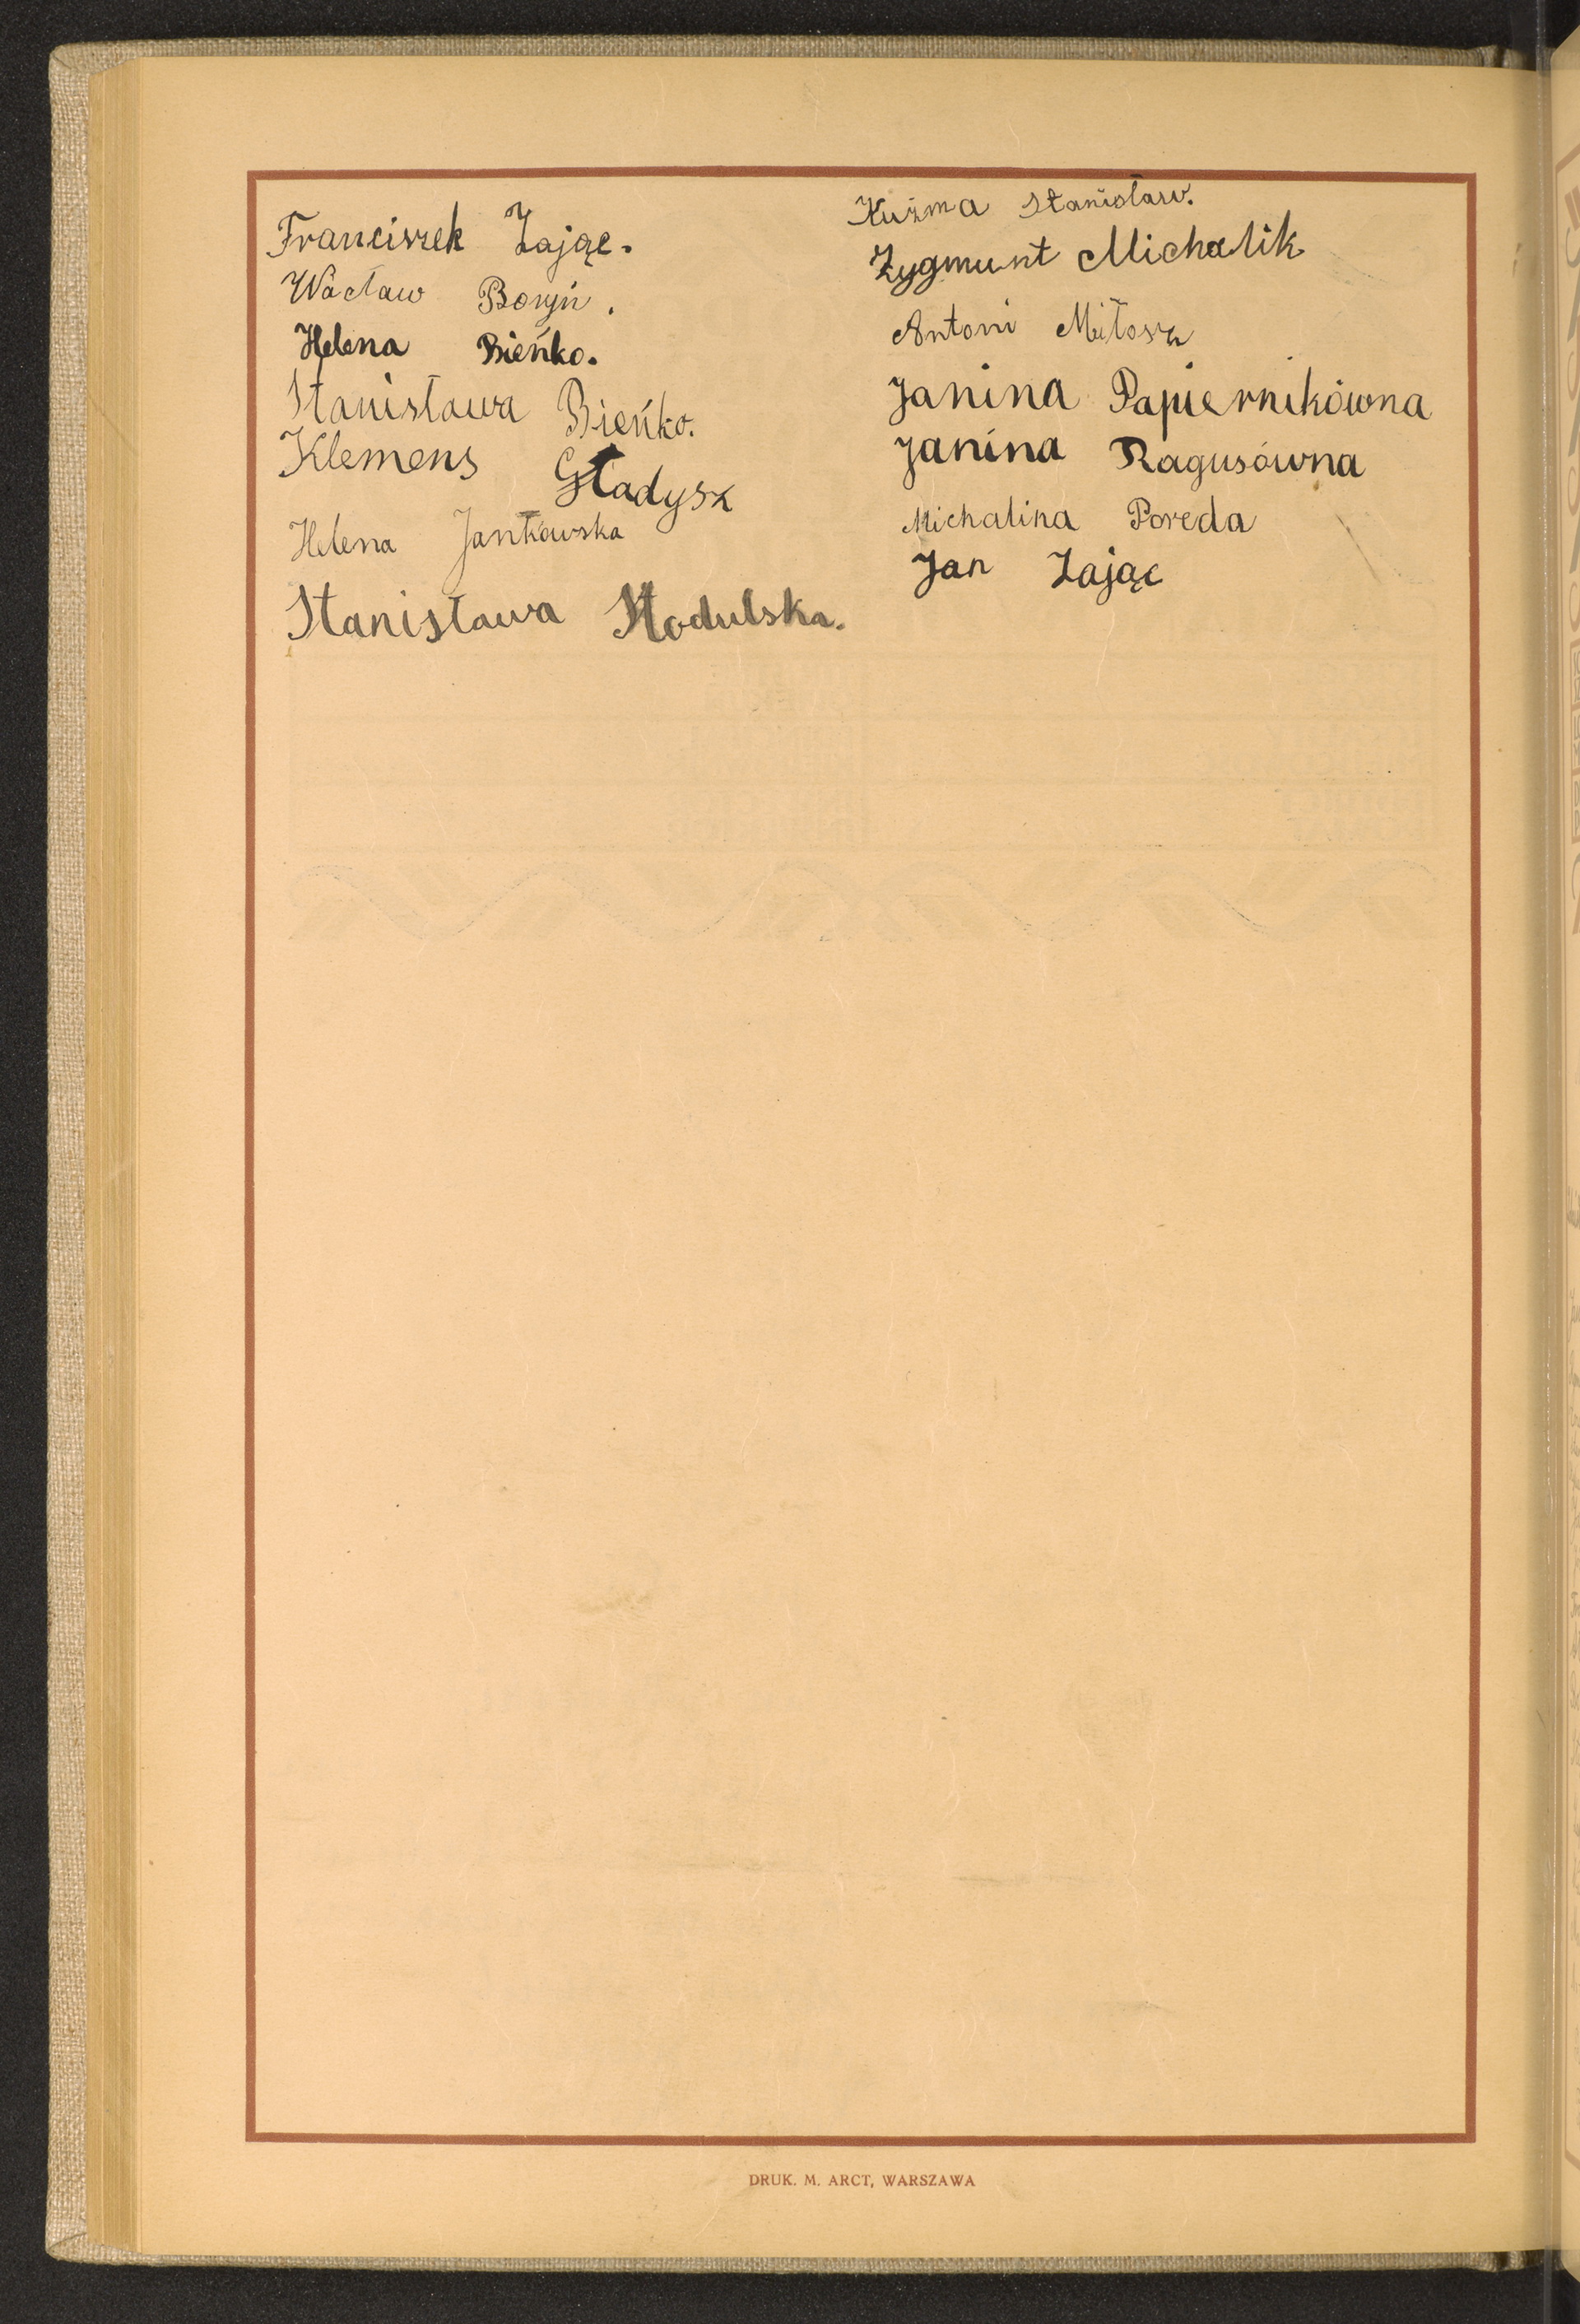 Franciszek Zając.
Wacław Boryń.
Helena Bieńko.
Stanisława Bieńko.
Klemens Gładysz
Helena Jantkowska
Stanisława Stodulska.
Kuźma Stanisław.
Zygmunt Michalik
Antoni Miłosz
Janina Papiernikówna
Janina Ragusówna
Michalina Poreda
Jan Zając
DRUK. M. ARCT, WARSZAWA